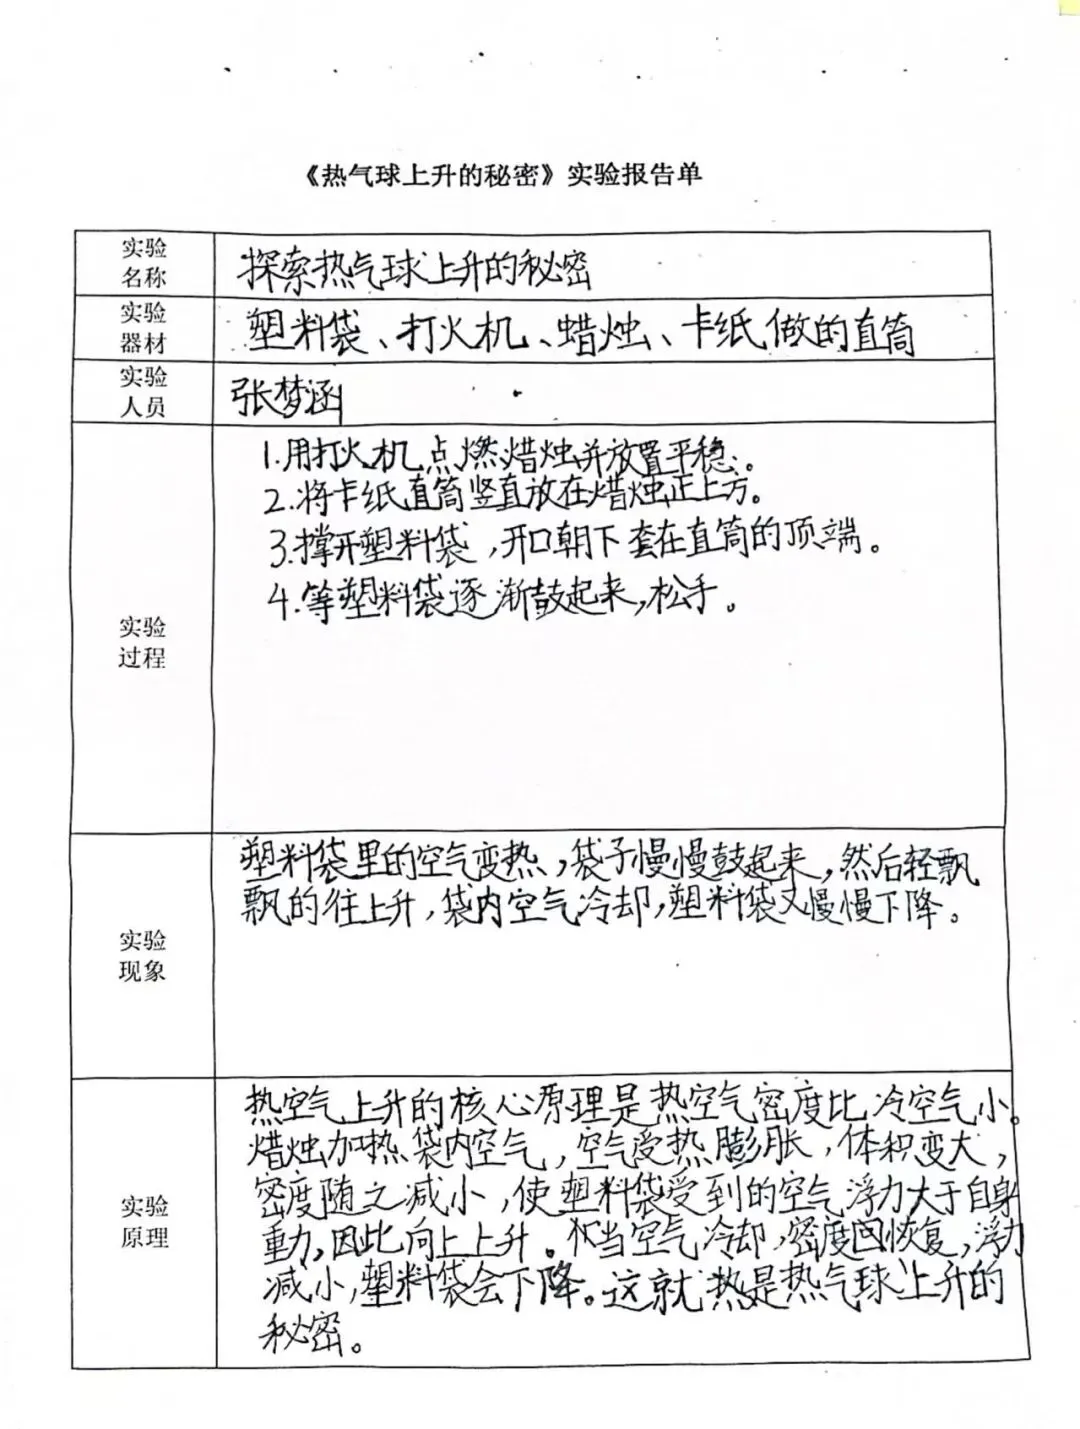 《热气球上升的秘密》实验报告单
实验
名称
探索热气球上升的秘密
实验
器材
塑料袋、打火机、蜡烛、卡纸做的直筒
实验
人员
张梦涵
实验
过程
1.用打火机点燃蜡烛并放置平稳。
2.将卡纸直筒竖直放在蜡烛正上方。
3.撑开塑料袋,开口朝下套在直筒的顶端。
4.等塑料袋逐渐鼓起来,松手。
实验
现象
塑料袋里的空气变热,袋子慢慢鼓起来,然后轻飘
飘的往上升,袋内空气冷却,塑料袋又慢慢下降。
实验
原理
热空气上升的核心原理是热空气密度比冷空气小。
蜡烛加热袋内空气,空气受热膨胀,体积变大,
密度随之减小,使塑料袋受到的空气浮力大于自身
重力,因此向上上升。当空气冷却,密度回恢复,浮力
减小,塑料袋会下降。这就热是热气球上升的
秘密。